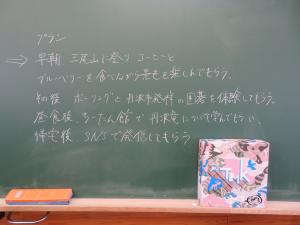 プラン
⇒ 早朝、三尾山に登り、コーヒーと
ブルーベリーを食べながら景色を楽しんでもらう。
その後、ボーリングと丹波市発祥の囲碁を体験してもらう。
昼食後、ちーたん館で丹波竜について学んでもらい、
帰宅後、SNSで発信してもらう